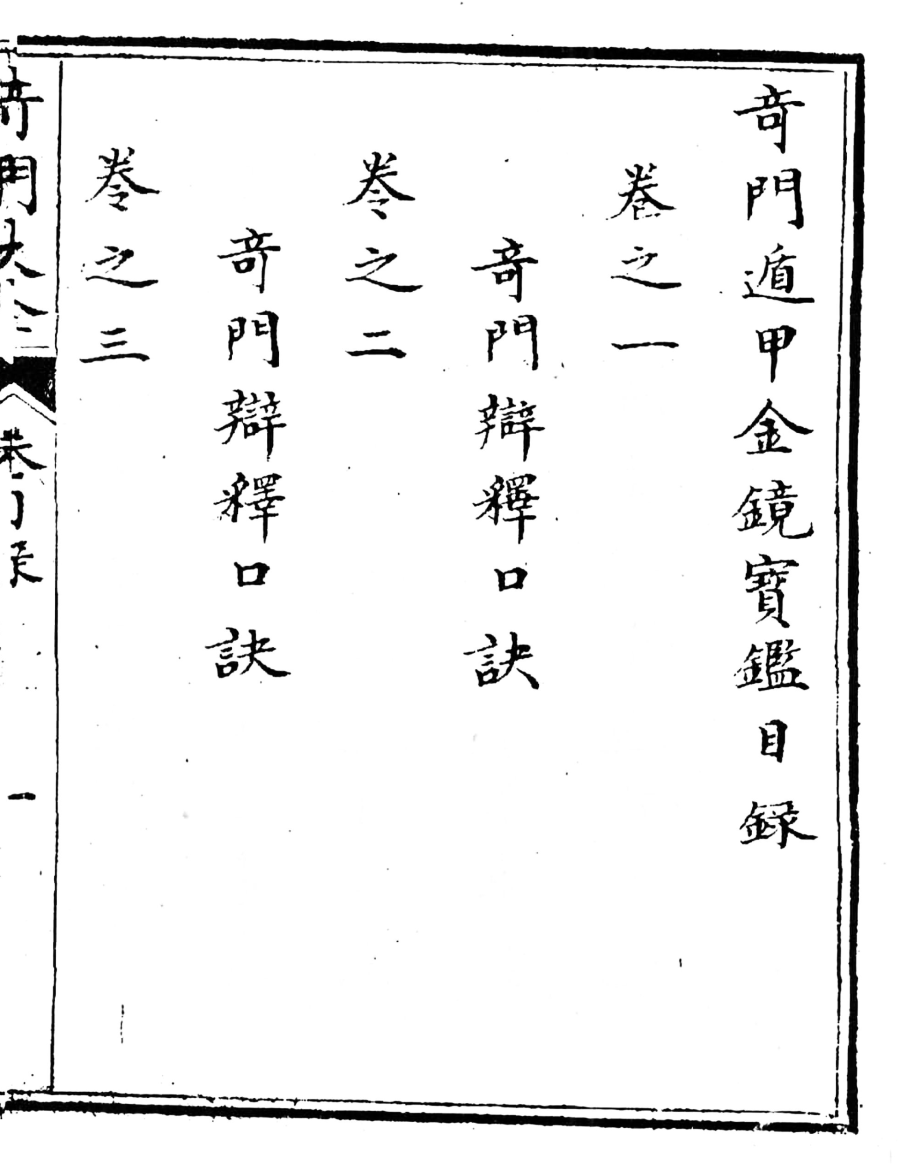 奇門遁甲金鏡寶鑑目録
卷之一
奇門辯釋口訣
卷之二
奇門辯釋口訣
卷之三
奇門大全
卷
一